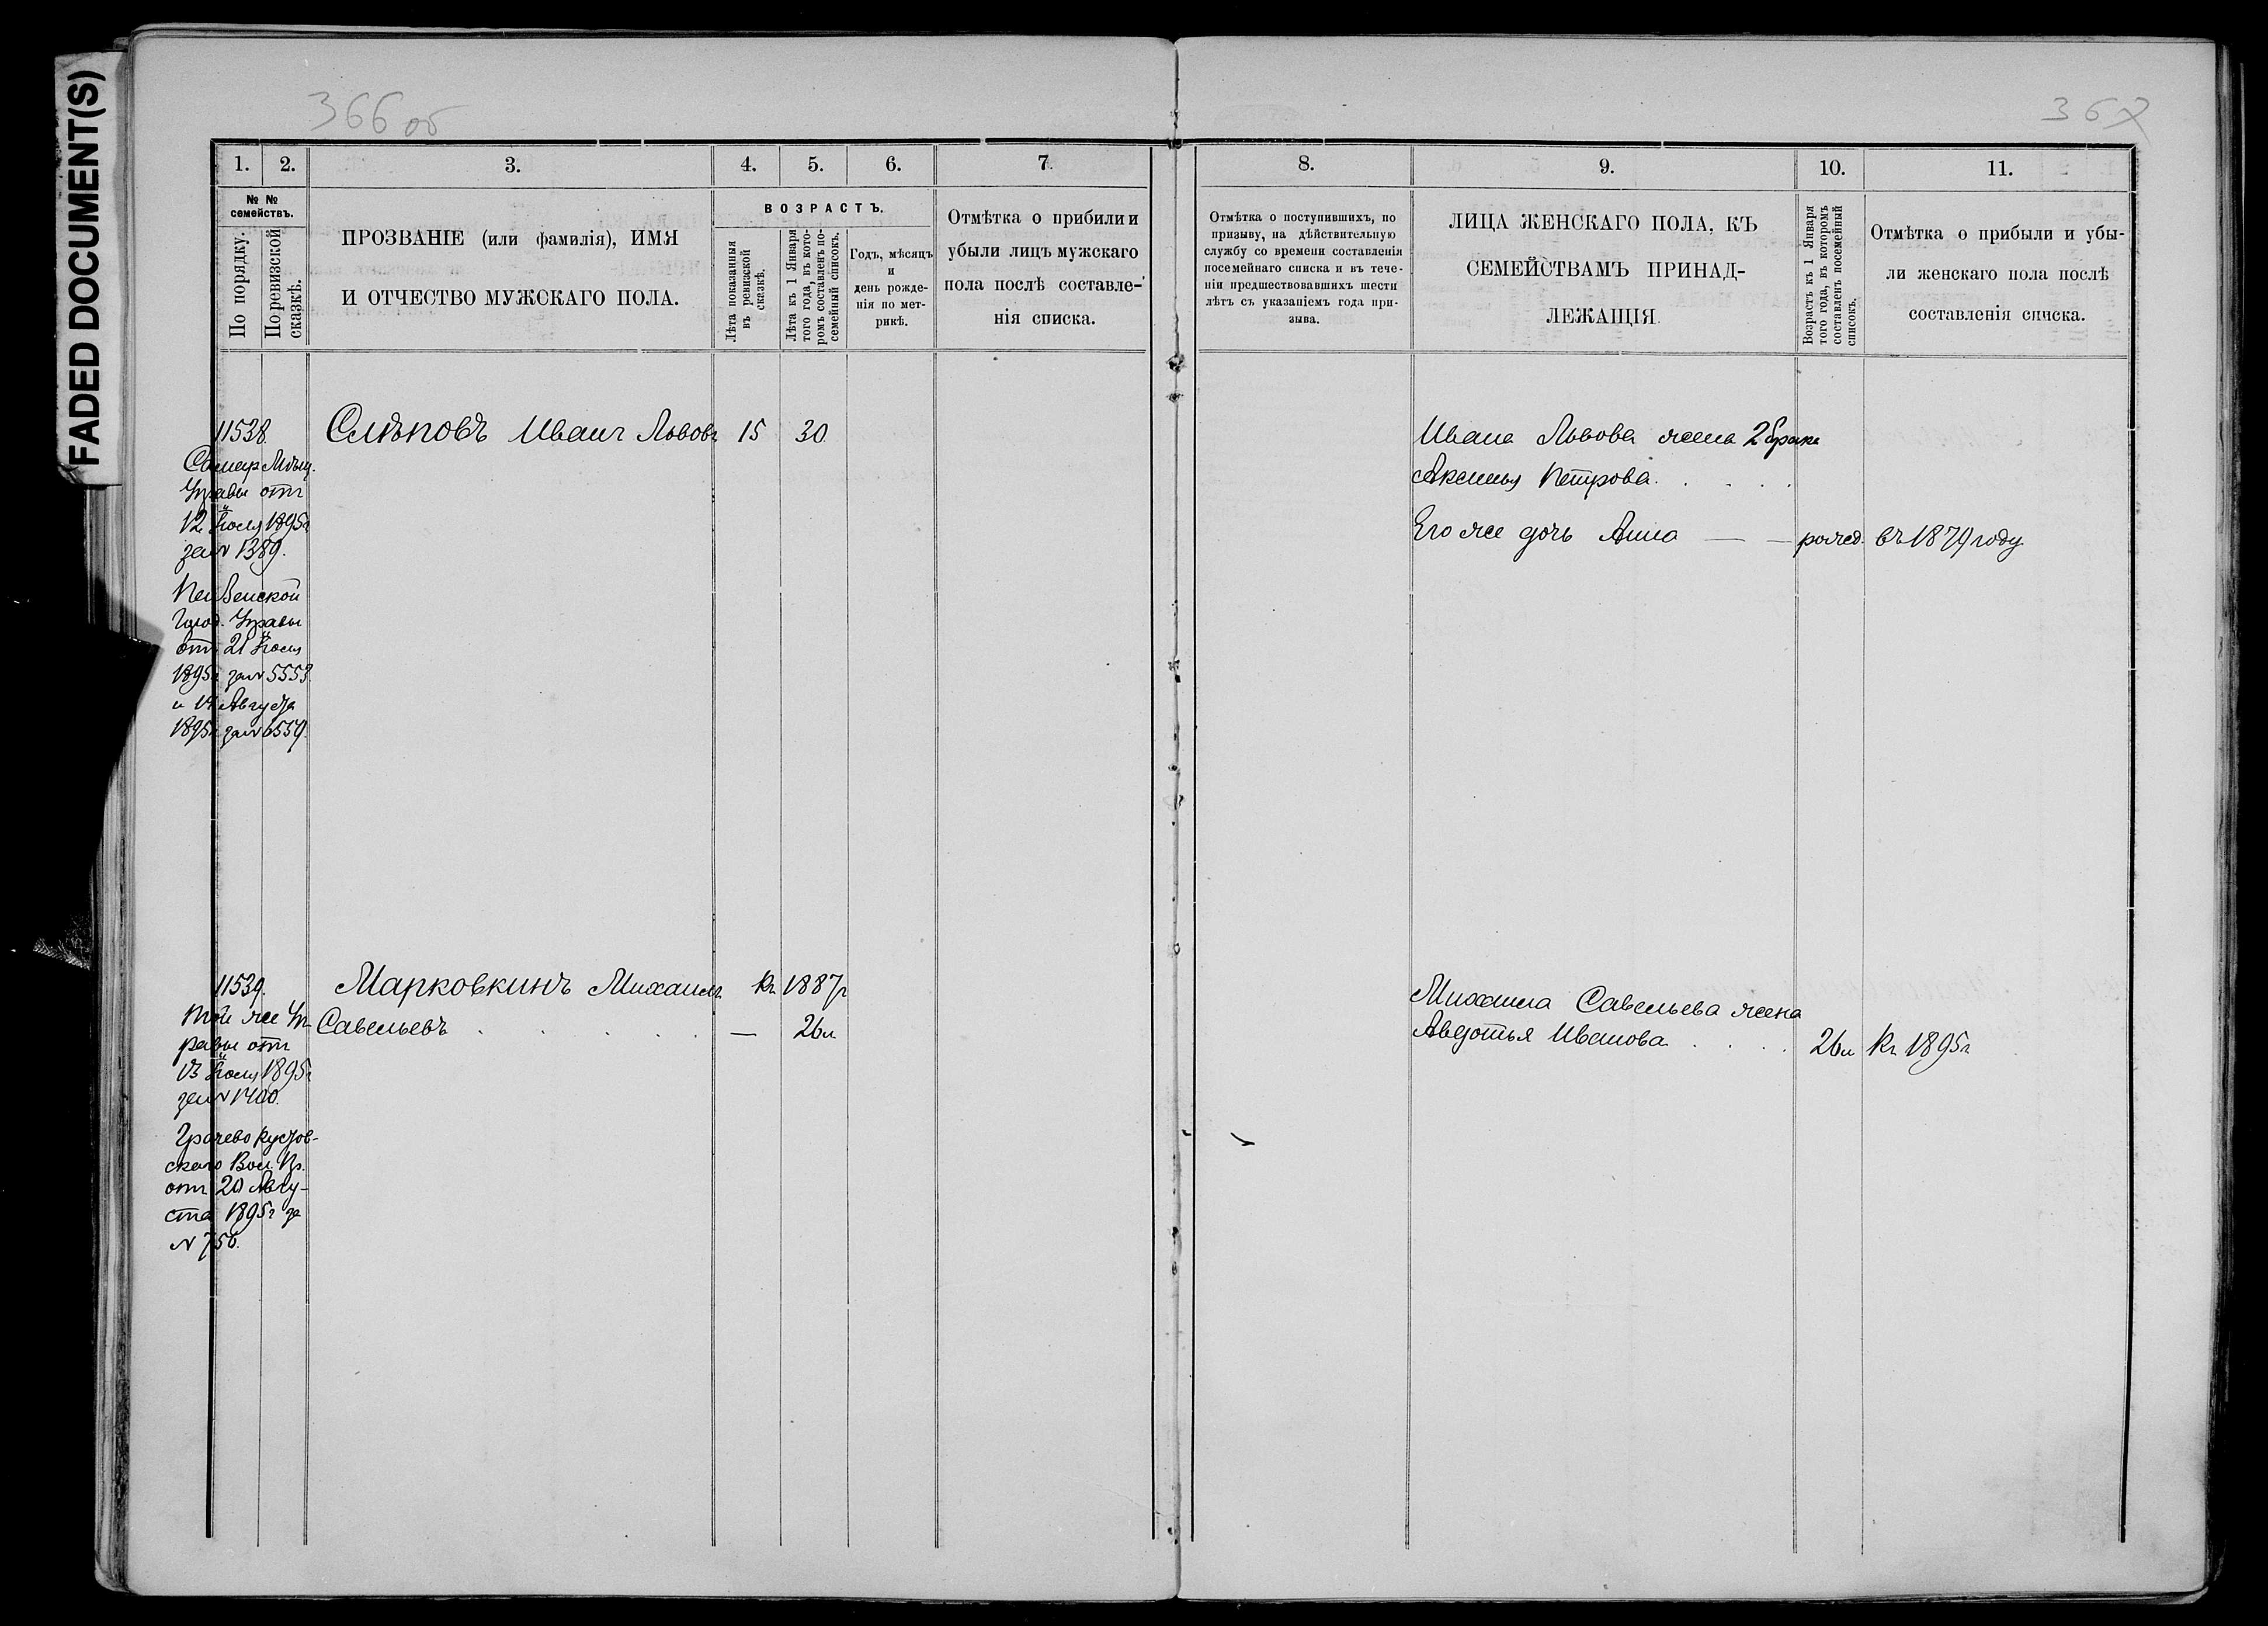 FADED DOCUMENT(S)
366 об
367
1.
2.
3.
4.
5.
6.
7.
8.
9.
10.
11.
№ №
семействъ.
По порядку.
По ревизской
сказкѣ.
ПРОЗВАНІЕ (или фамилія), ИМЯ
И ОТЧЕСТВО МУЖСКАГО ПОЛА.
ВОЗРАСТЪ.
Лѣта показанныя
въ ревизской
сказкѣ.
Лѣта къ 1 Января
того года, въ кото-
ромъ составленъ по-
семейный списокъ.
Годъ, мѣсяцъ
и
день рожде-
нія по мет-
рикѣ.
Отмѣтка о прибили и
убыли лицъ мужскаго
пола послѣ составле-
нія списка.
Отмѣтка о поступившихъ, по
призыву, на дѣйствительную
службу со времени составленія
посемейнаго списка и въ тече-
ніи предшествовавшихъ шести
лѣтъ съ указаніемъ года при-
зыва.
ЛИЦА ЖЕНСКАГО ПОЛА, КЪ
СЕМЕЙСТВАМЪ ПРИНАД-
ЛЕЖАЩІЯ.
Возрастъ къ 1 Января
того года, въ которомъ
составленъ посемейный
списокъ.
Отмѣтка о прибыли и убы-
ли женскаго пола послѣ
составленія списка.
11538.
Самар Мѣщ.
Управы отъ
12 Іюля 1895г
за N 1389.
Пензенской
Город. Управы
отъ 21 Іюля
1895г за N 5553.
и 14 Августа
1895г за N 6559.
Слѣповъ Иванъ Львовъ 15 30
Ивана Львова жена 2 брака
Аксинья Петрова. . . .
Его же дочь Анна — — рожд. въ 1879 году
11539.
Той же Уп-
равы отъ
13 Іюля 1895г
за N 1400.
Грачево Кустов-
скаго Вол. Пр.
отъ 20 Авгу-
ста 1895г за
N 750.
Марковкинъ Михаилъ Къ 1887г
Савельевъ . . . . . — 26л
Михаила Савельева жена
Авдотья Иванова . . . . 26л Къ 1895г